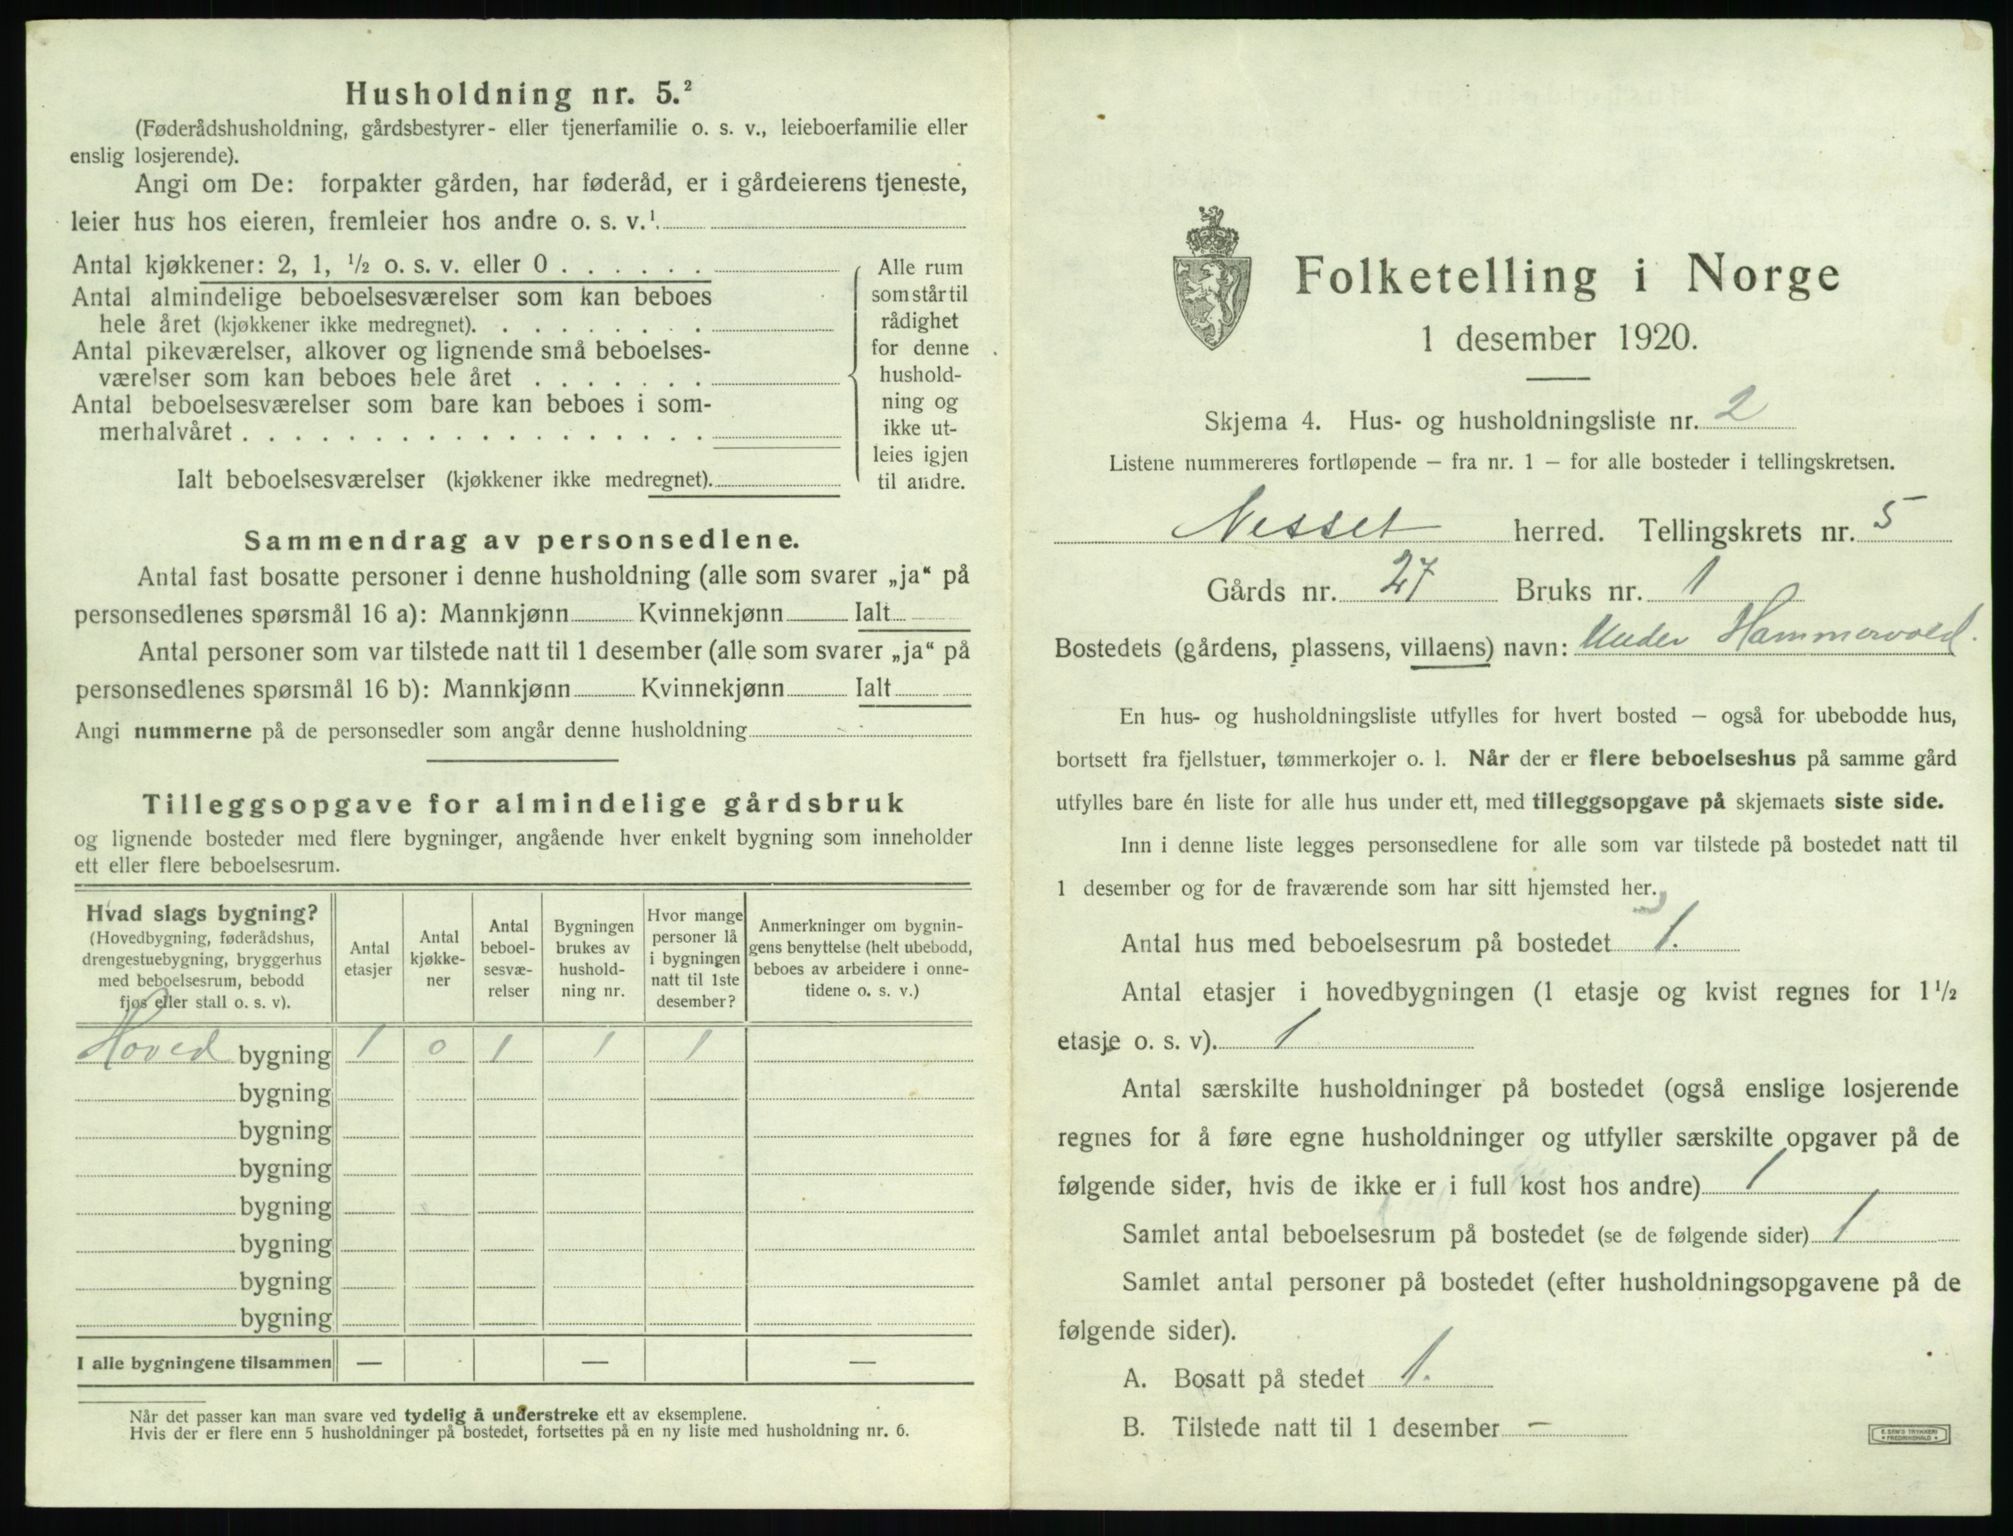 Husholdning nr. 5.²
(Føderådshusholdning, gårdsbestyrer- eller tjenerfamilie o. s. v., leieboerfamilie eller
enslig losjerende).
Angi om De: forpakter gården, har føderåd, er i gårdeierens tjeneste,
leier hus hos eieren, fremleier hos andre o. s. v.¹
Antal kjøkkener: 2, 1, ½ o. s. v. eller 0 . . . . . .
Antal almindelige beboelsesværelser som kan beboes
hele året (kjøkkener ikke medregnet). . . . . . . . .
Antal pikeværelser, alkover og lignende små beboelses-
værelser som kan beboes hele året . . . . . . .
Antal beboelsesværelser som bare kan beboes i som-
merhalvåret . . . . . . . . . . . . . . . . . .
Ialt beboelsesværelser (kjøkkener ikke medregnet).
Alle rum
som står til
rådighet
for denne
hushold-
ning og
ikke ut-
leies igjen
til andre.
Sammendrag av personsedlene.
Antal fast bosatte personer i denne husholdning (alle som svarer „ja“ på
personsedlenes spørsmål 16 a): Mannkjønn Kvinnekjønn Ialt
Antal personer som var tilstede natt til 1 desember (alle som svarer „ja“ på
personsedlenes spørsmål 16 b): Mannkjønn Kvinnekjønn Ialt
Angi nummerne på de personsedler som angår denne husholdning
Tilleggsopgave for almindelige gårdsbruk
og lignende bosteder med flere bygninger, angående hver enkelt bygning som inneholder
ett eller flere beboelsesrum.
Hvad slags bygning?
(Hovedbygning, føderådshus,
drengestuebygning, bryggerhus
med beboelsesrum, bebodd
fjøs eller stall o. s. v).
Antal
etasjer
Antal
kjøkke-
ner
Antal
beboel-
sesvæ-
relser
Bygningen
brukes av
hushold-
ning nr.
Hvor mange
personer lå
i bygningen
natt til 1ste
desember?
Anmerkninger om bygnin-
gens benyttelse (helt ubebodd,
beboes av arbeidere i onne-
tidene o. s. v.)
Hoved bygning 1 0 1 1 1
bygning
bygning
bygning
bygning
bygning
bygning
bygning
I alle bygningene tilsammen — — —
Når det passer kan man svare ved tydelig å understreke ett av eksemplene.
Hvis der er flere enn 5 husholdninger på bostedet, fortsettes på en ny liste med husholdning nr. 6.
Folketelling i Norge
1 desember 1920.
Skjema 4. Hus- og husholdningsliste nr. 2
Listene nummereres fortløpende – fra nr. 1 – for alle bosteder i tellingskretsen.
Nesset herred. Tellingskrets nr. 5
Gårds nr. 27 Bruks nr. 1
Bostedets (gårdens, plassens, villaens) navn: Under Hammervold.
En hus- og husholdningsliste utfylles for hvert bosted – også for ubebodde hus,
bortsett fra fjellstuer, tømmerkojer o. l. Når der er flere beboelseshus på samme gård
utfylles bare én liste for alle hus under ett, med tilleggsopgave på skjemaets siste side.
Inn i denne liste legges personsedlene for alle som var tilstede på bostedet natt til
1 desember og for de fraværende som har sitt hjemsted her.
Antal hus med beboelsesrum på bostedet 1.
Antal etasjer i hovedbygningen (1 etasje og kvist regnes for 1½
etasje o. s. v). 1
Antal særskilte husholdninger på bostedet (også enslige losjerende
regnes for å føre egne husholdninger og utfyller særskilte opgaver på de
følgende sider, hvis de ikke er i full kost hos andre) 1
Samlet antal beboelsesrum på bostedet (se de følgende sider) 1
Samlet antal personer på bostedet (efter husholdningsopgavene på de
følgende sider).
A. Bosatt på stedet 1.
B. Tilstede natt til 1 desember –
E. SEM'S TRYKKERI
FREDRIKSHALD